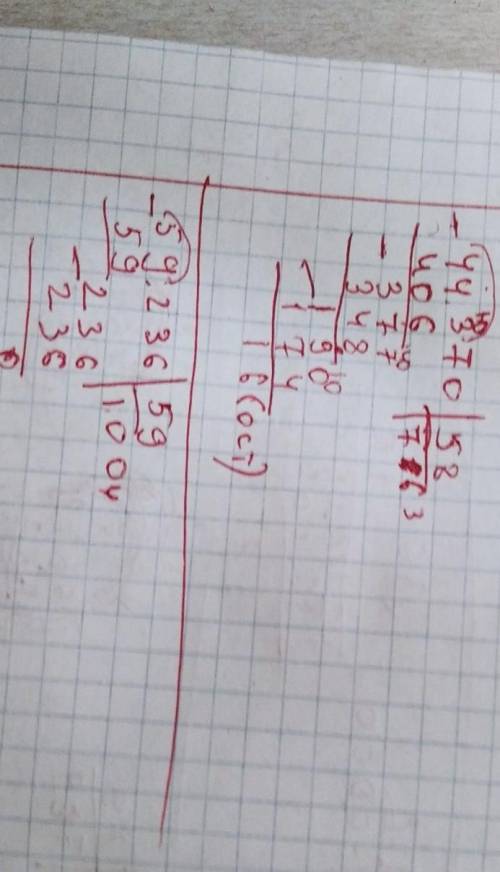 44370 | 58
- 406 | 763
377
- 348
190
- 174
16 (ост)
59236 | 59
- 59 | 1004
236
- 236
0